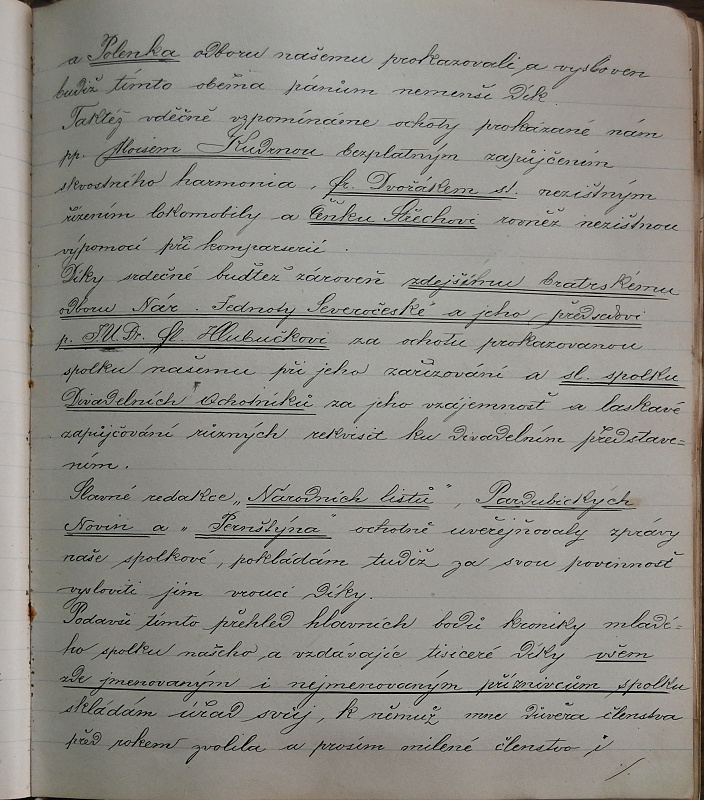 a Polenka odboru našemu prokazovali, a vysloven
budiž tímto oběma pánům nemenší dík.
Taktéž vděčně vzpomínáme ochoty prokázané nám
pp. Aloisem Kudrnou bezplatným zapůjčením
skvostného harmonia, fr. Dvořákem st. nezištným
řízením lokomobily a Čeňku Střechovi rovněž nezištnou
výpomocí při komparserii.
Díky srdečné buďtež zároveň zdejšímu bratrskému
odboru Nár. Jednoty Severočeské a jeho předsedovi
p. J.U.Dr. fl. Hlubučkovi za ochotu prokazovanou
spolku našemu při jeho zařizování a sl. spolku
Divadelních Ochotníků za jho vzájemnosť a laskavé
zapůjčování různých rekvisit ku divadelním představe=
ním.
Slavné redakce „Národních listů", Pardubických
Novin a „Pernštýna" ochotně uveřejňovaly zprávy
naše spolkové, pokládám tudíž za svou povinnosť
vysloviti jim vroucí díky.
Podavši tímto přehled hlavních bodů kroniky mladé=
ho spolku našeho, a vzdávajíc tisíceré díky všem
zde jmenovaným i nejmenovaným příznivcům spolku
skládám úřad svůj, k němuž mne důvěra členstva
před rokem zvolila a prosím milené členstvo, i
./.